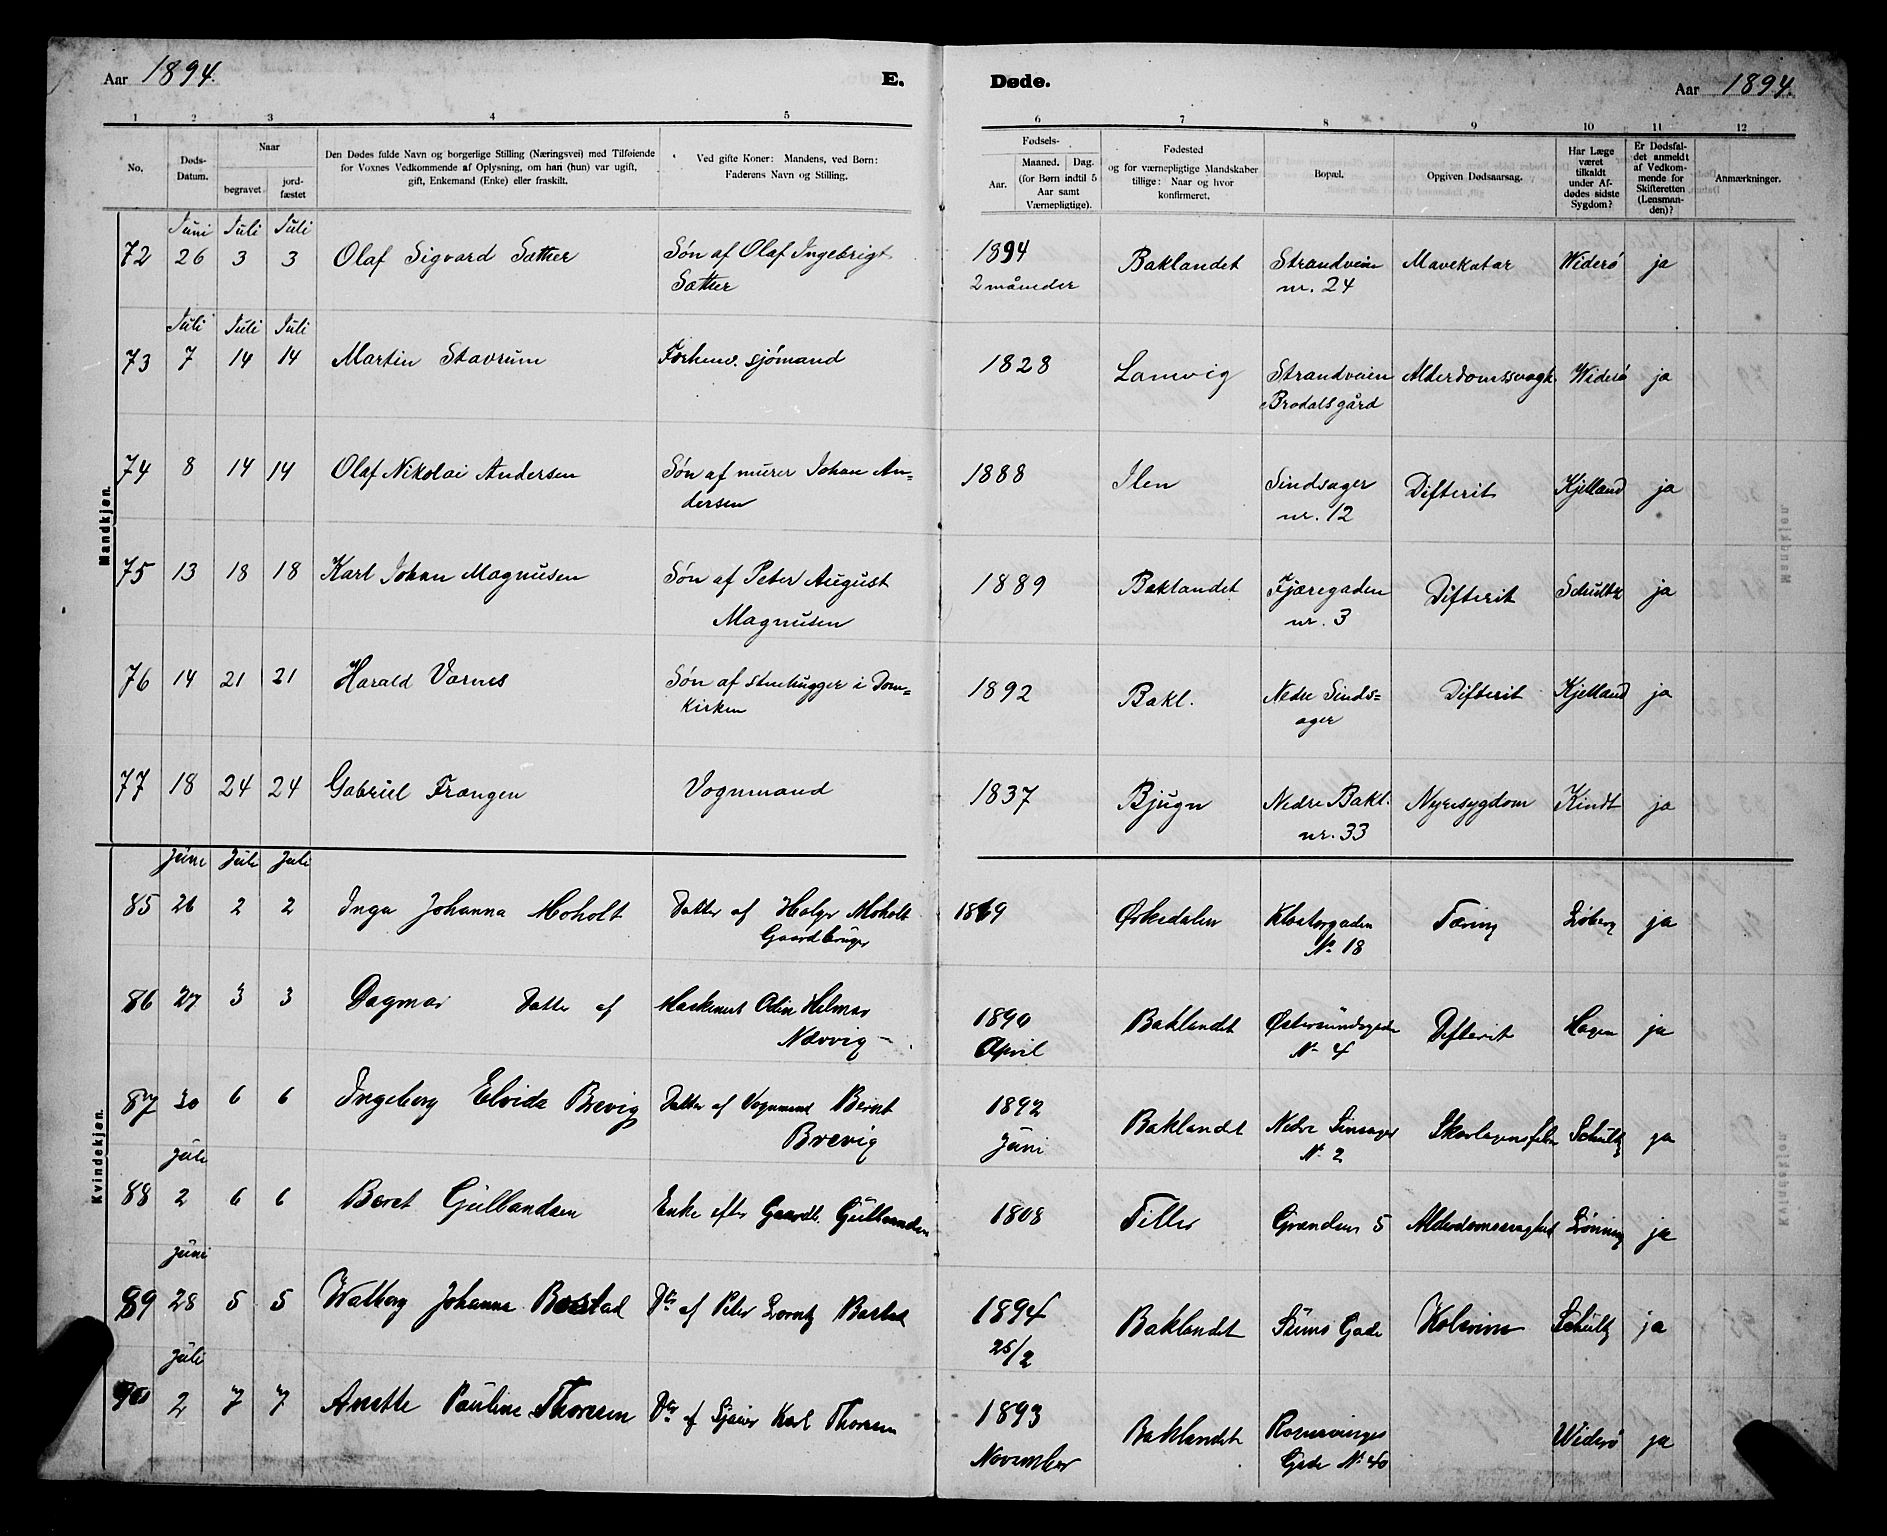 Aar 1894. E. Døde. Aar 1894.
1 2 3 4 5 6 7 8 9 10 11 12
No. Døds-Datum. Naar begravet jordfæstet
Den Dødes fulde Navn og borgerlige Stilling (Næringsvei) med Tilføiende for Voxnes Vedkommende af Oplysning, om han (hun) var ugift, gift, Enkemand (Enke) eller fraskilt.
Ved gifte Koner: Mandens, ved Børn: Faderens Navn og Stilling.
Fødsels- Aar. Maaned. Dag. (for Børn indtil 5 Aar samt Værnepligtige).
Fødested og for værnepligtige Mandskaber tillige: Naar og hvor konfirmeret.
Bopæl.
Opgiven Dødsaarsag.
Har Læge været tilkaldt under Afdødes sidste Sygdom?
Er Dødsfaldet anmeldt af Vedkommende for Skifteretten (Lensmanden)?
Anmærkninger.
Mandkjøn.
Juni Juli Juli
72 26 3 3 Olaf Sigvard Sæther Søn af Olaf Ingebrigt 1894 Baklandet Strandveien Mavekatar Widerø ja
Sæther 2 måneder nr. 24
Juli Juli Juli
73 7 14 14 Martin Stavrum Forhenv. sjømand 1828 Lomvig Strandveien Alderdomssvagh. Widerø ja
Brodalsgård
74 8 14 14 Olaf Nikolai Andersen Søn af murer Johan An= 1888 Ilen Sindsager Difterit Kjelland ja
dersen nr. 12
75 13 18 18 Karl Johan Magnusen Søn af Peter August 1889 Baklandet Fjæregaden Difterit Schultz ja
Magnusen nr. 3
76 14 21 21 Harald Varnes Søn af stenhugger i Dom= 1892 Bakl. Nedre Sinds= Difterit Kjelland ja
kirken ager
77 18 24 24 Gabriel Frængen Vognmand 1837 Bjugn Nedre Bakl. Nyresygdom Kindt ja
nr. 33
Kvindekjøn.
Juni Juli Juli
85 26 2 2 Inga Johanna Moholt Datter af Holger Moholt Ørkedalen Klostergaden Tæring Løberg ja
Gaardbruger No 18
86 27 3 3 Dagmar Datter af Maskinist Odin Helmer 1890 Baklandet Østersundsgade Difterit Hagen ja
Nævvig April No 4
87 30 6 6 Ingeborg Elvida Brevig Datter af Vognmand Bernt 1892 Baklandt Nedre Sinsager Skarlagensfeber Schultz ja
Brevig Juni No 2
Juli
88 2 6 6 Beret Gullandsen Enke efter Gaardb. Gullandsen 1808 Tiller Grænden 5 Alderdomssvaghed Lønning ja
Juni
89 28 5 5 Walborg Johanna Bostad Dtr af Peter Lorntz Bostad 1894 Baklandet Gade Kolerine Schultz ja
25/2
Juli
90 2 7 7 Anette Pauline Thoresen Dtr af Karl Thoresen 1893 Baklandet Rosenvinges Widerø ja
November Gade No 40